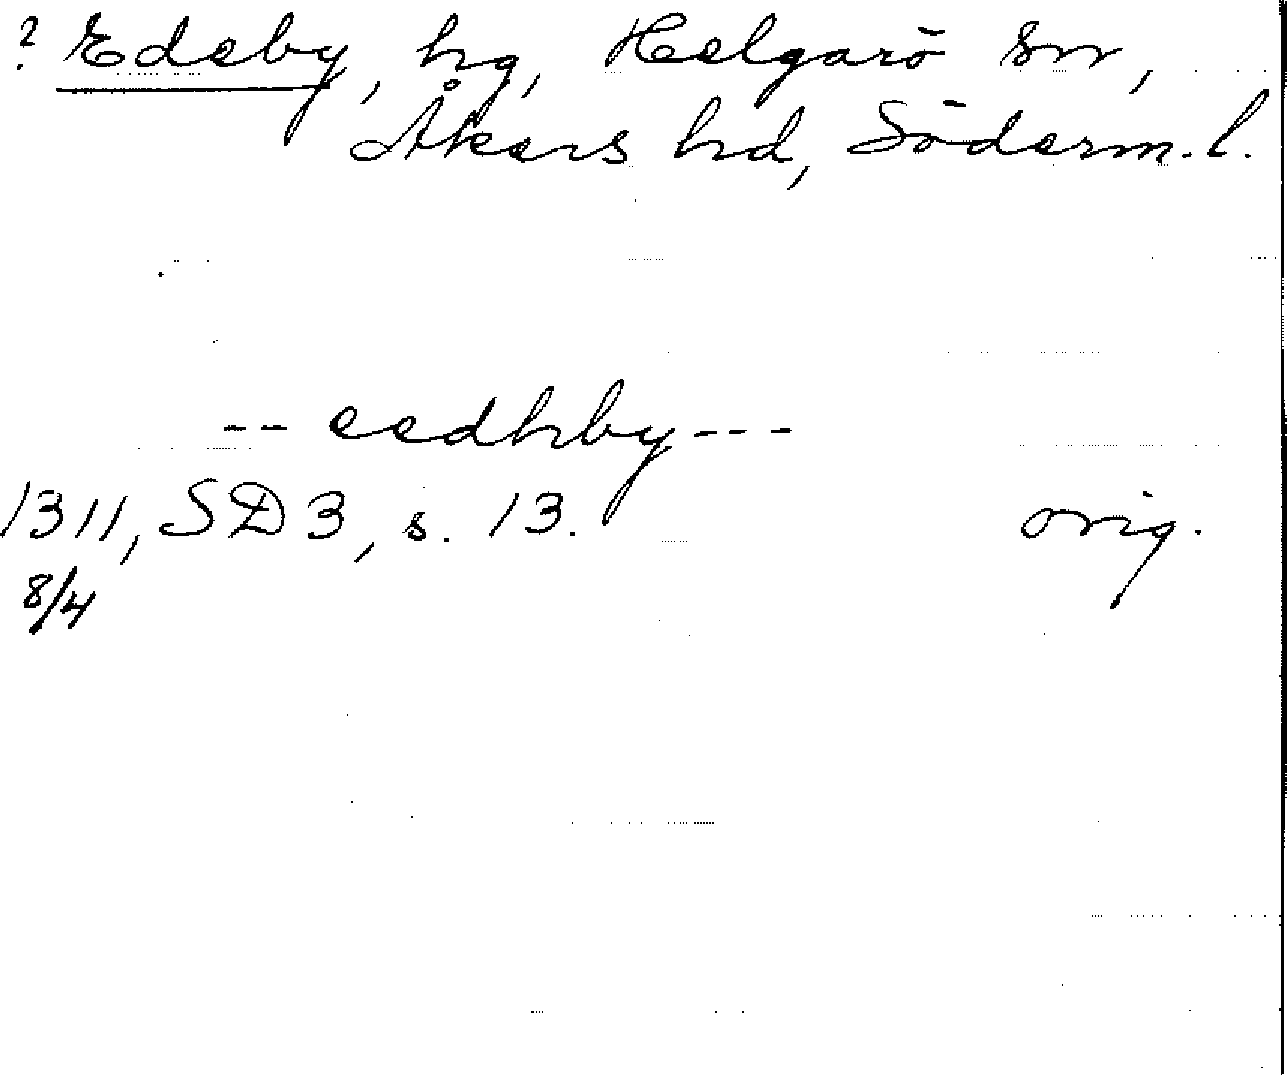 ? Edeby, hg, Helgarö sn,
Åkers hd, Söderm. l.
-- eedhby ---
1311, SD 3, s. 13. orig.
8/4